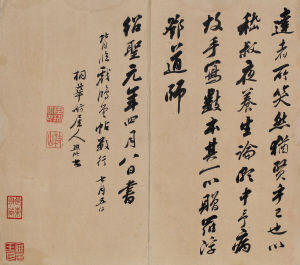 達者所笑然猶賢乎已也以
嵇叔夜養生論頗中予病
故手寫數本其一以贈羅浮
鄧道師
紹聖元年四月八日書
背臨戲鴻堂帖數行 七月五日
桐華
居人